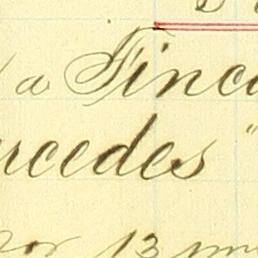 a Finca
rcedes"
por 13